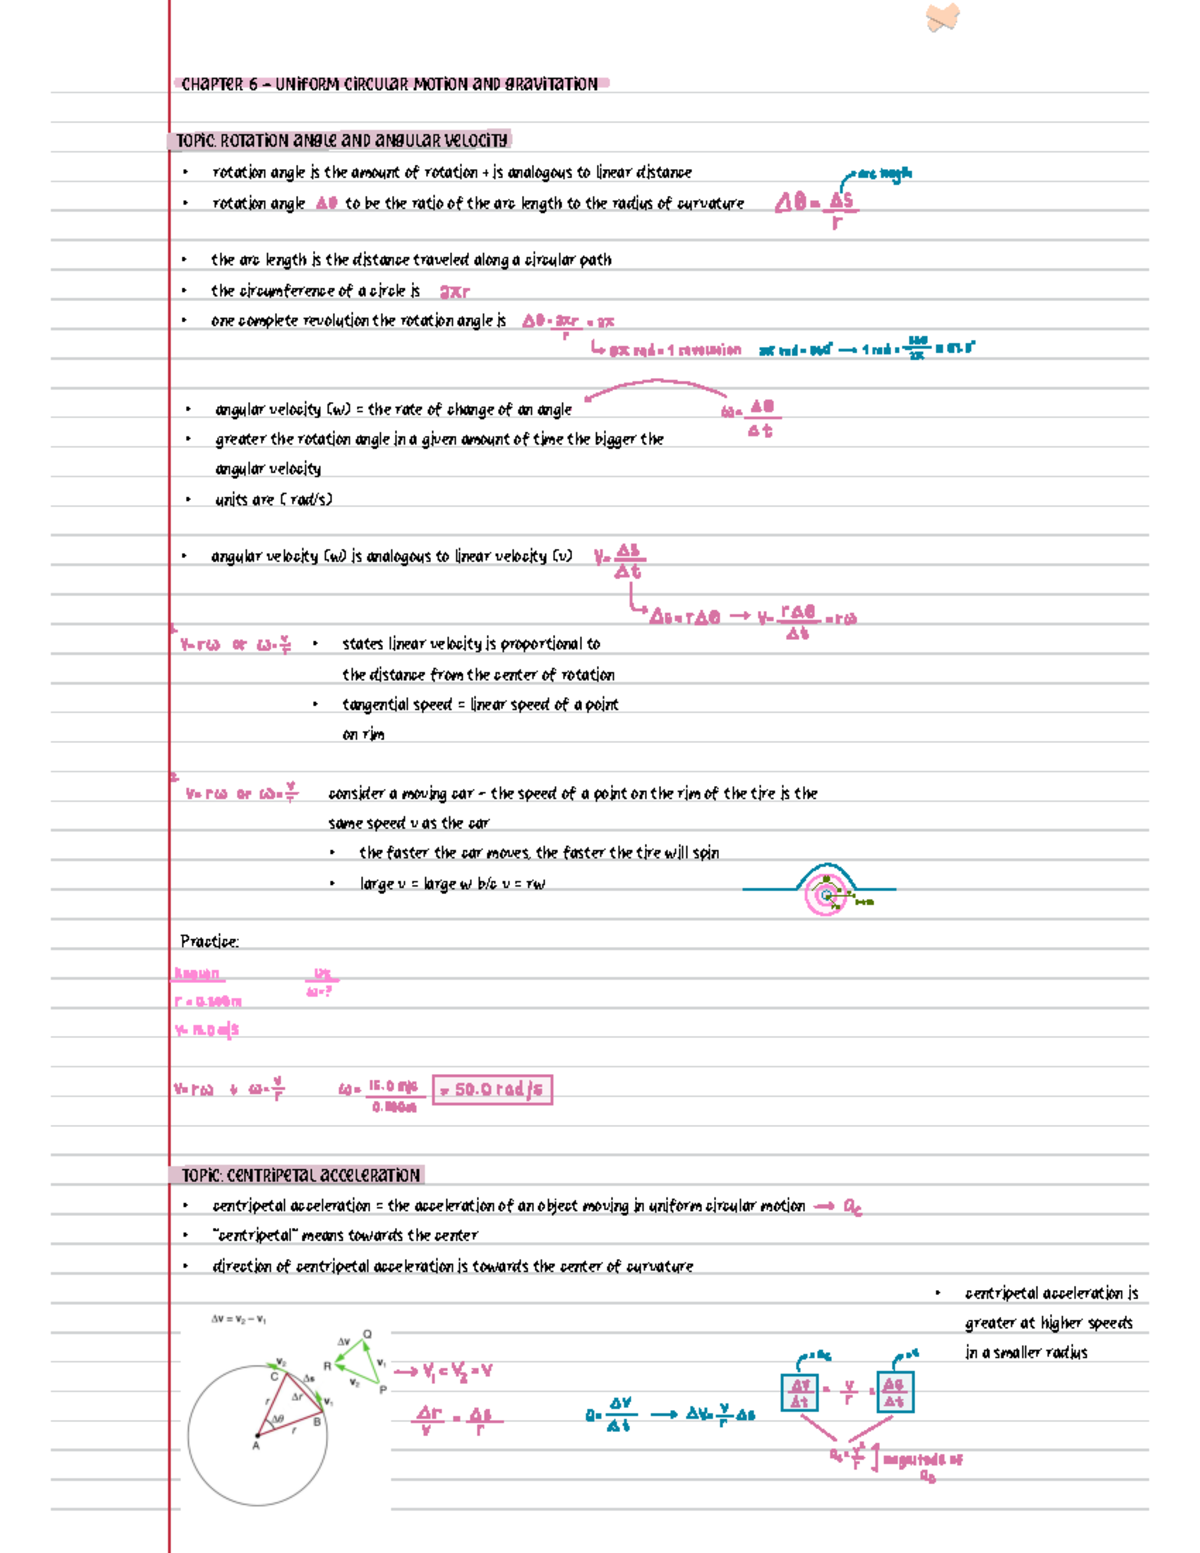 CHAPTER 6 – UNIFORM CIRCULAR MOTION AND GRAVITATION
TOPIC: ROTATION ANGLE AND ANGULAR VELOCITY
• rotation angle is the amount of rotation + is analogous to linear distance
arc length
• rotation angle Δθ to be the ratio of the arc length to the radius of curvature Δθ = Δs/r
• the arc length is the distance traveled along a circular path
• the circumference of a circle is 2πr
• one complete revolution the rotation angle is Δθ = 2πr/r = 2π
↳ 2π rad = 1 revolution 2π rad = 360° → 1 rad = 360/2π = 57.3°
• angular velocity (w) = the rate of change of an angle ω = Δθ/Δt
• greater the rotation angle in a given amount of time the bigger the
angular velocity
• units are ( rad/s)
• angular velocity (w) is analogous to linear velocity (v) V = Δs/Δt
↳ Δs = rΔθ → V = rΔθ/Δt = rω
1. V = rω or ω = v/r • states linear velocity is proportional to
the distance from the center of rotation
• tangential speed = linear speed of a point
on rim
2. V = rω or ω = v/r consider a moving car – the speed of a point on the rim of the tire is the
same speed v as the car
• the faster the car moves, the faster the tire will spin
• large v = large w b/c v = rw
Practice:
Known
ω = ?
r = 0.300m
V = 15.0 m/s
V = rω + ω = v/r ω = 15.0 m/s / 0.300m = 50.0 rad/s
TOPIC: CENTRIPETAL ACCELERATION
• centripetal acceleration = the acceleration of an object moving in uniform circular motion → ac
• "centripetal" means towards the center
• direction of centripetal acceleration is towards the center of curvature
• centripetal acceleration is
greater at higher speeds
in a smaller radius
Δv = v₂ – v₁
Δv Q R v₁ v₂ P
v₂ C Δs r Δr v₁ B Δθ r A
→ V₁ = V₂ = V
Δr/v = Δs/r
a = Δv/Δt → Δv = v/r Δs
Δv/Δt = v/r =
ac = v²/r ] magnitude of